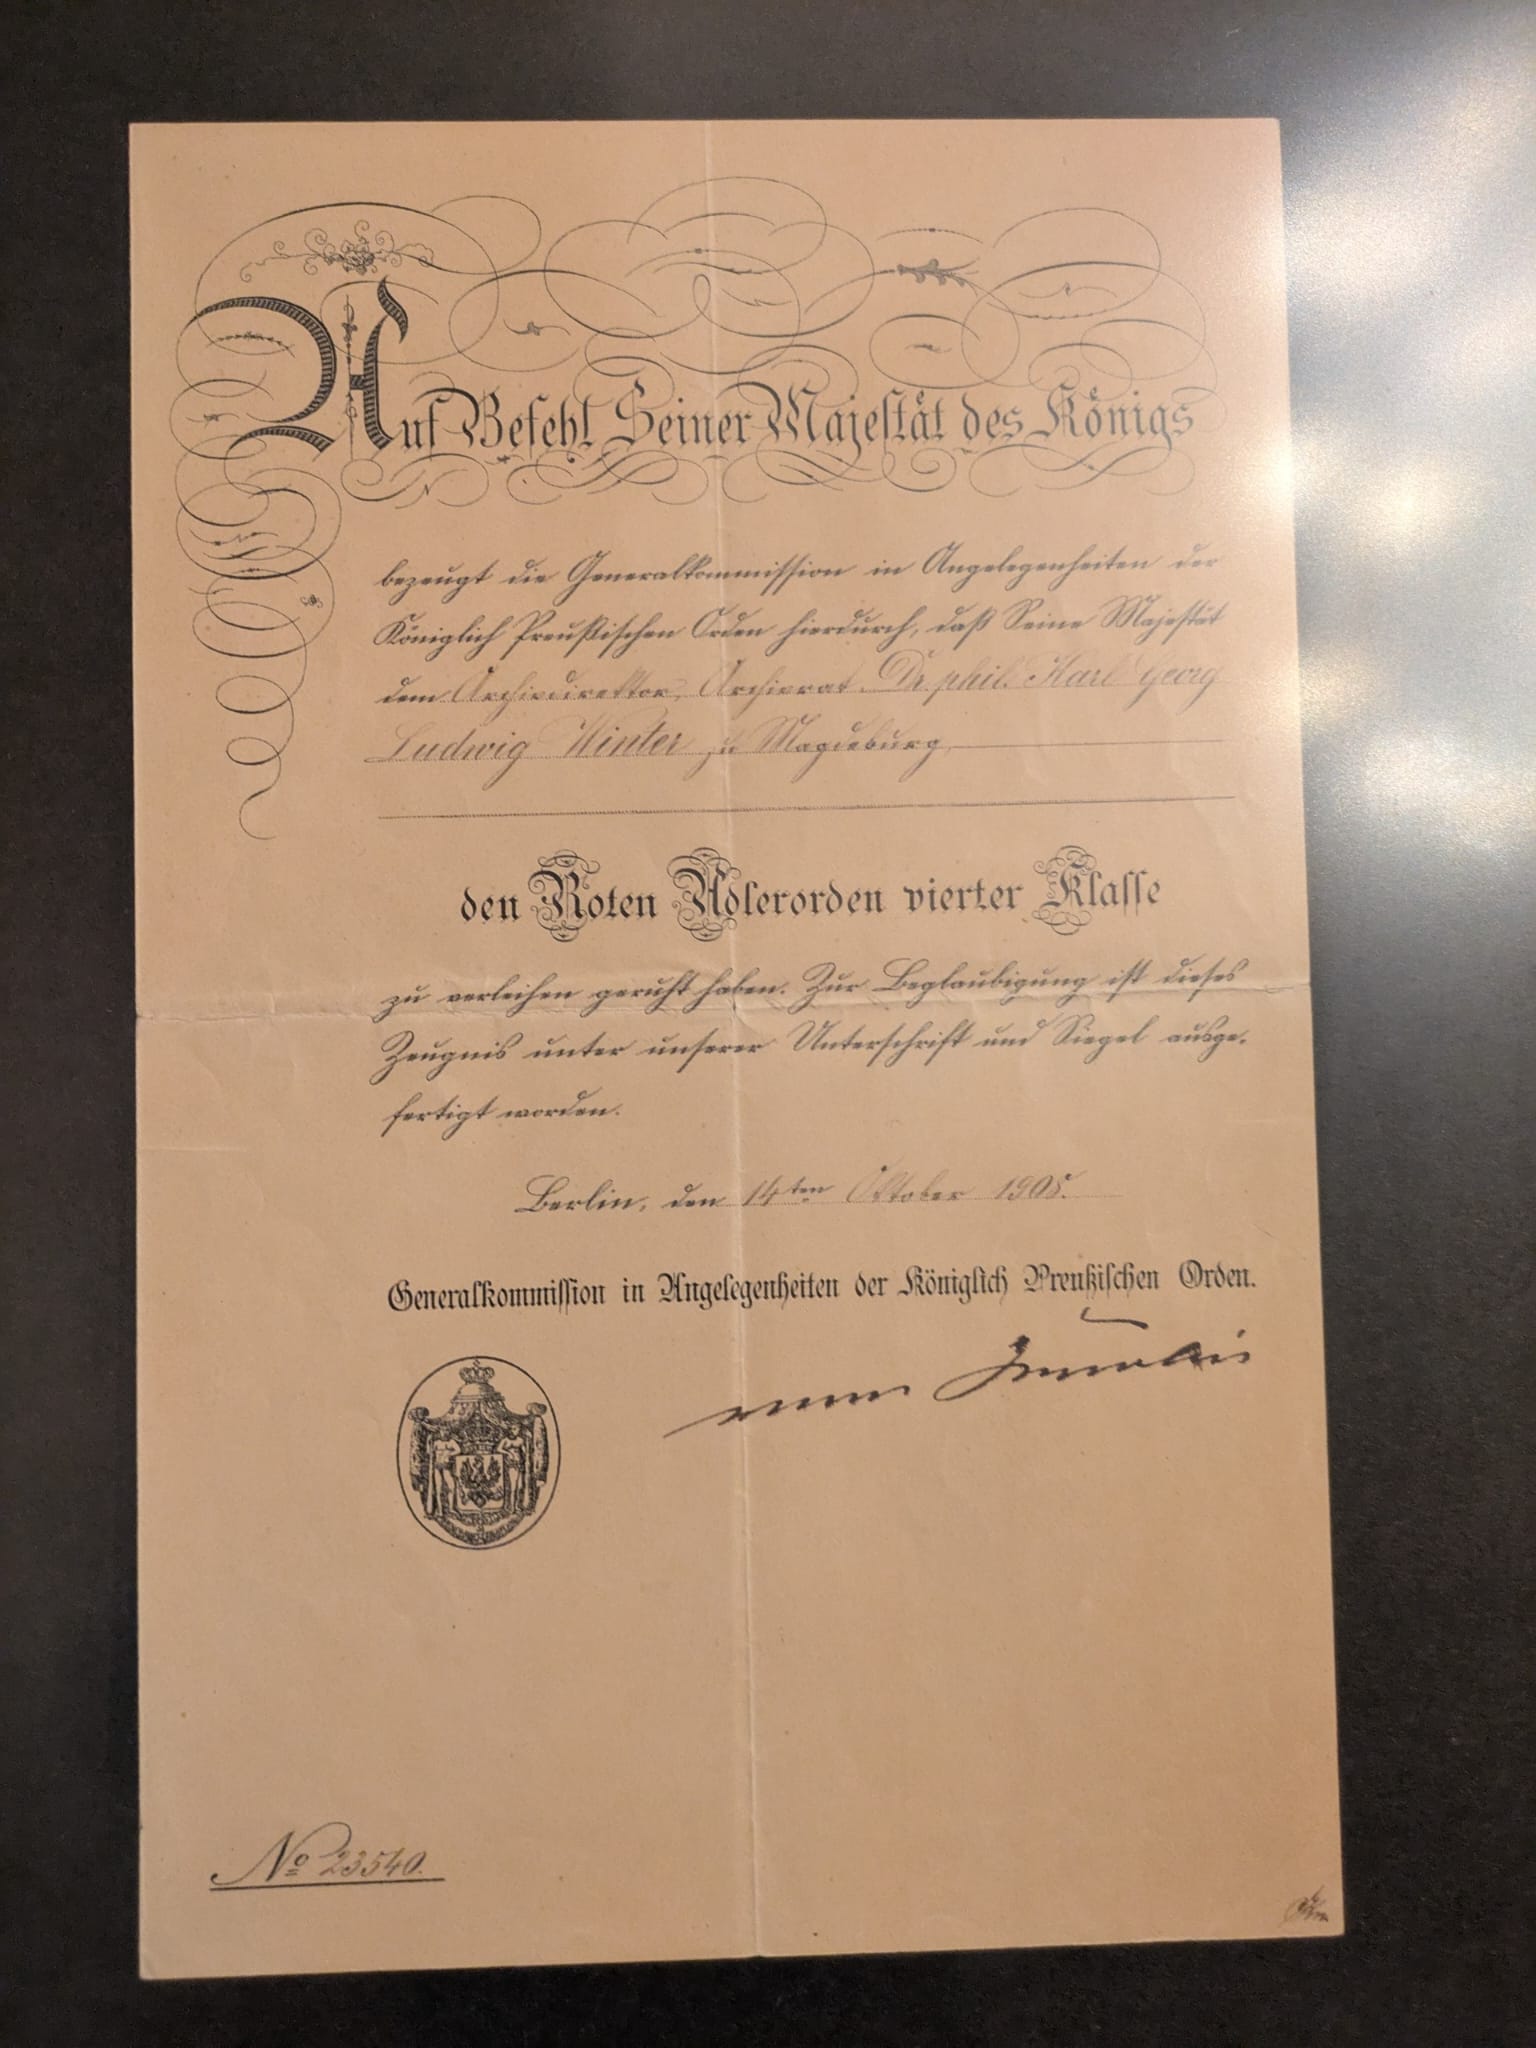 Auf Befehl Seiner Majestät des Königs
bezeugt die Generalkommission in Angelegenheiten der
Königlich Preußischen Orden hierdurch, daß Seine Majestät
dem Archivdirektor, Archivrat Dr. phil. Karl Georg
Ludwig Winter zu Magdeburg,
den Roten Adlerorden vierter Klasse
zu verleihen geruht haben. Zur Beglaubigung ist dieses
Zeugnis unter unserer Unterschrift und Siegel ausge-
fertigt worden.
Berlin, den 14ten Oktober 1905.
Generalkommission in Angelegenheiten der Königlich Preußischen Orden.
No 23540.